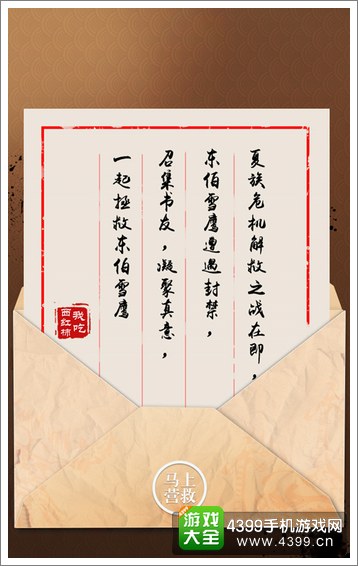 夏族危机解救之战在即，
东伯雪鹰遭遇封禁，
召集书友，凝聚真意，
一起拯救东伯雪鹰
我吃
西红柿
马上
营救
游戏
大全
4399手机游戏网
www.4399.cn